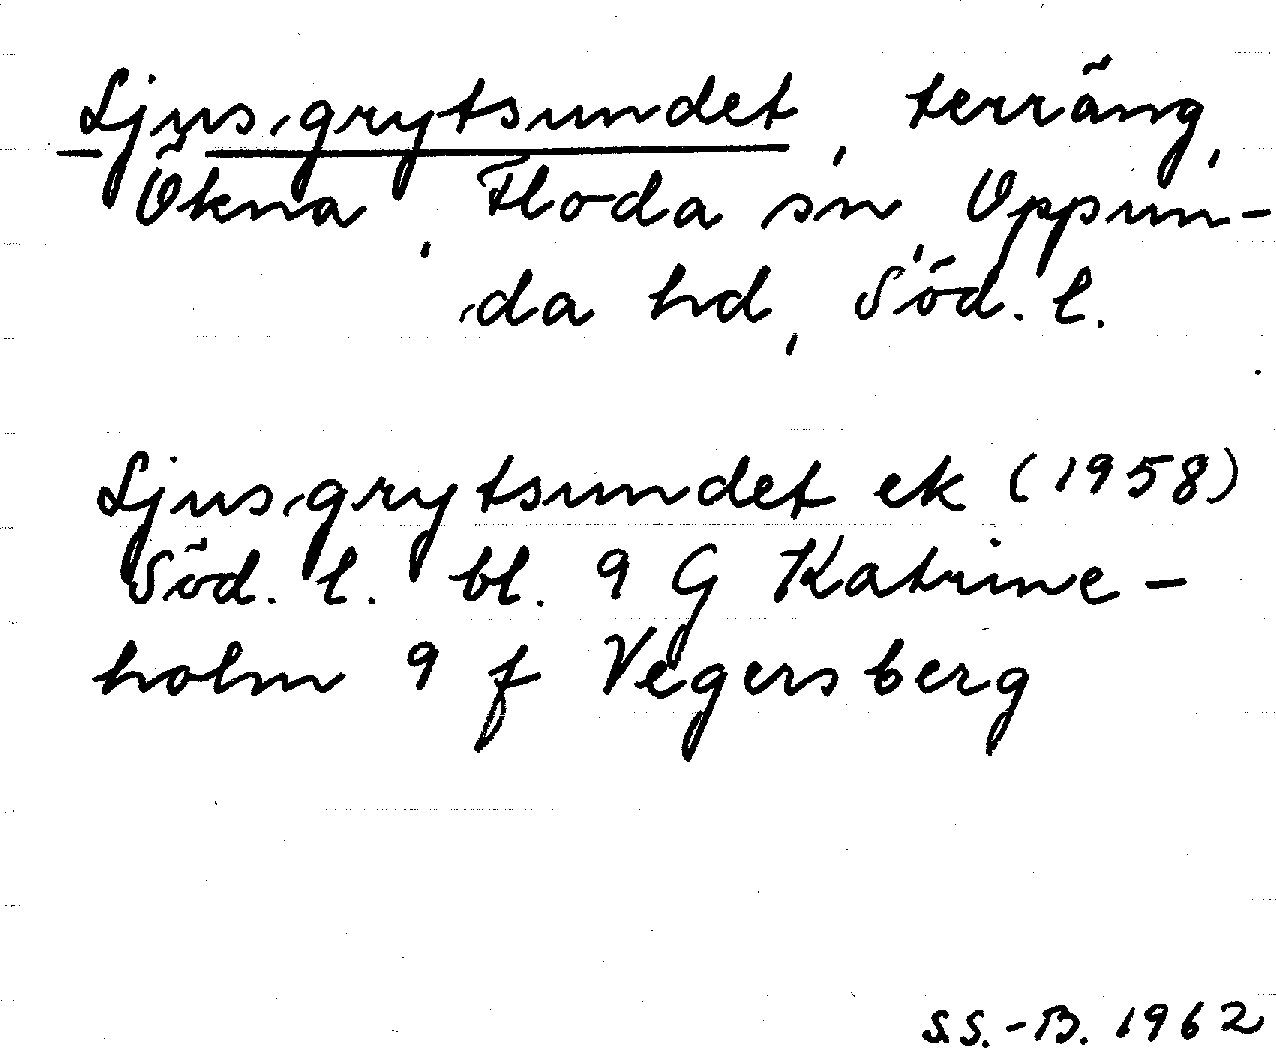 Ljusgrytsundet, terräng,
Ökna, Floda sn, Oppun-
da hd, Söd. l.
Ljusgrytsundet ek (1958)
Söd. l. bl. 9 G Katrine-
holm 9 f Vegersberg
S.S.-B. 1962